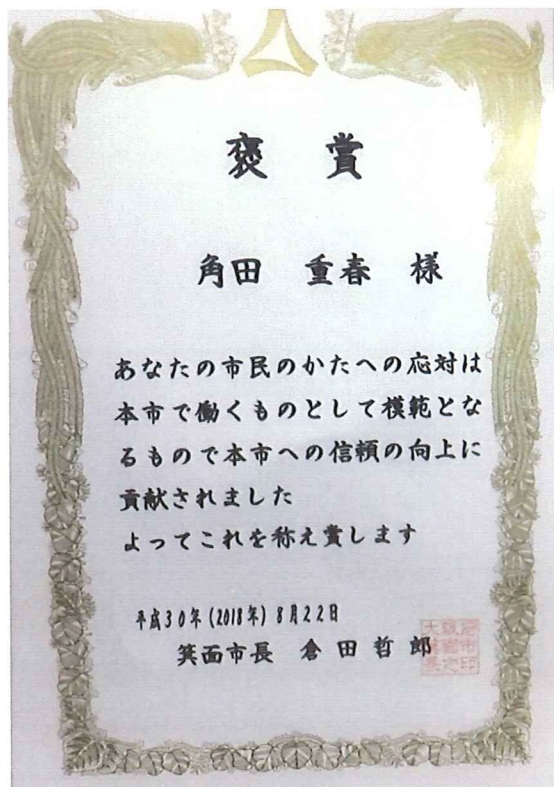 褒賞
角田 重春 様
あなたの市民のかたへの応対は
本市で働くものとして模範とな
るもので本市への信頼の向上に
貢献されました
よってこれを称え賞します
平成30年(2018年)8月22日
箕面市長 倉田哲郎